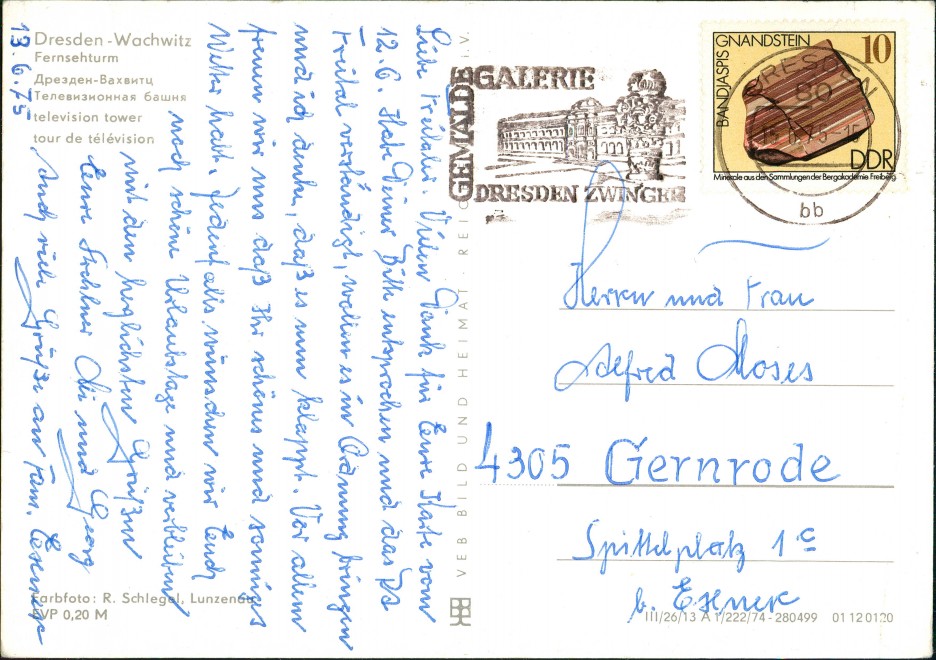 Dresden-Wachwitz
Fernsehturm
Дрезден-Вахвитц
Телевизионная башня
television tower
tour de télévision
13.6.75
Liebe Freitaler. Vielen Dank für Eure Karte vom
12.6. Habe Deiner Bitte entsprochen und das
Freital verständigt, wollen es in Ordnung bringen
und ich denke, daß es nun klappt. Vor allem
freuen wir uns daß Ihr schönes und sonniges
Wetter habt. Jedenfalls wünschen wir Euch
noch schöne Urlaubstage und verbleiben
mit den herzlichsten Grüßen
Eure und Georg
Auch viele Grüße an Fam. Exner
Farbfoto: R. Schlegel, Lunzenau
EVP 0,20 M
VEB BILD UND HEIMAT · REIC i. V.
GEMÄLDE
GALERIE
DRESDEN ZWINGER
BANDJASPIS GNANDSTEIN
10
DDR
Minerale aus den Sammlungen der Bergakademie Freiberg
DRESDEN
bb
Herrn und Frau
Alfred Moses
4305 Gernrode
Spittelplatz 1c
b. Exner
III/26/13 A 1/222/74-280499 01 12 0120